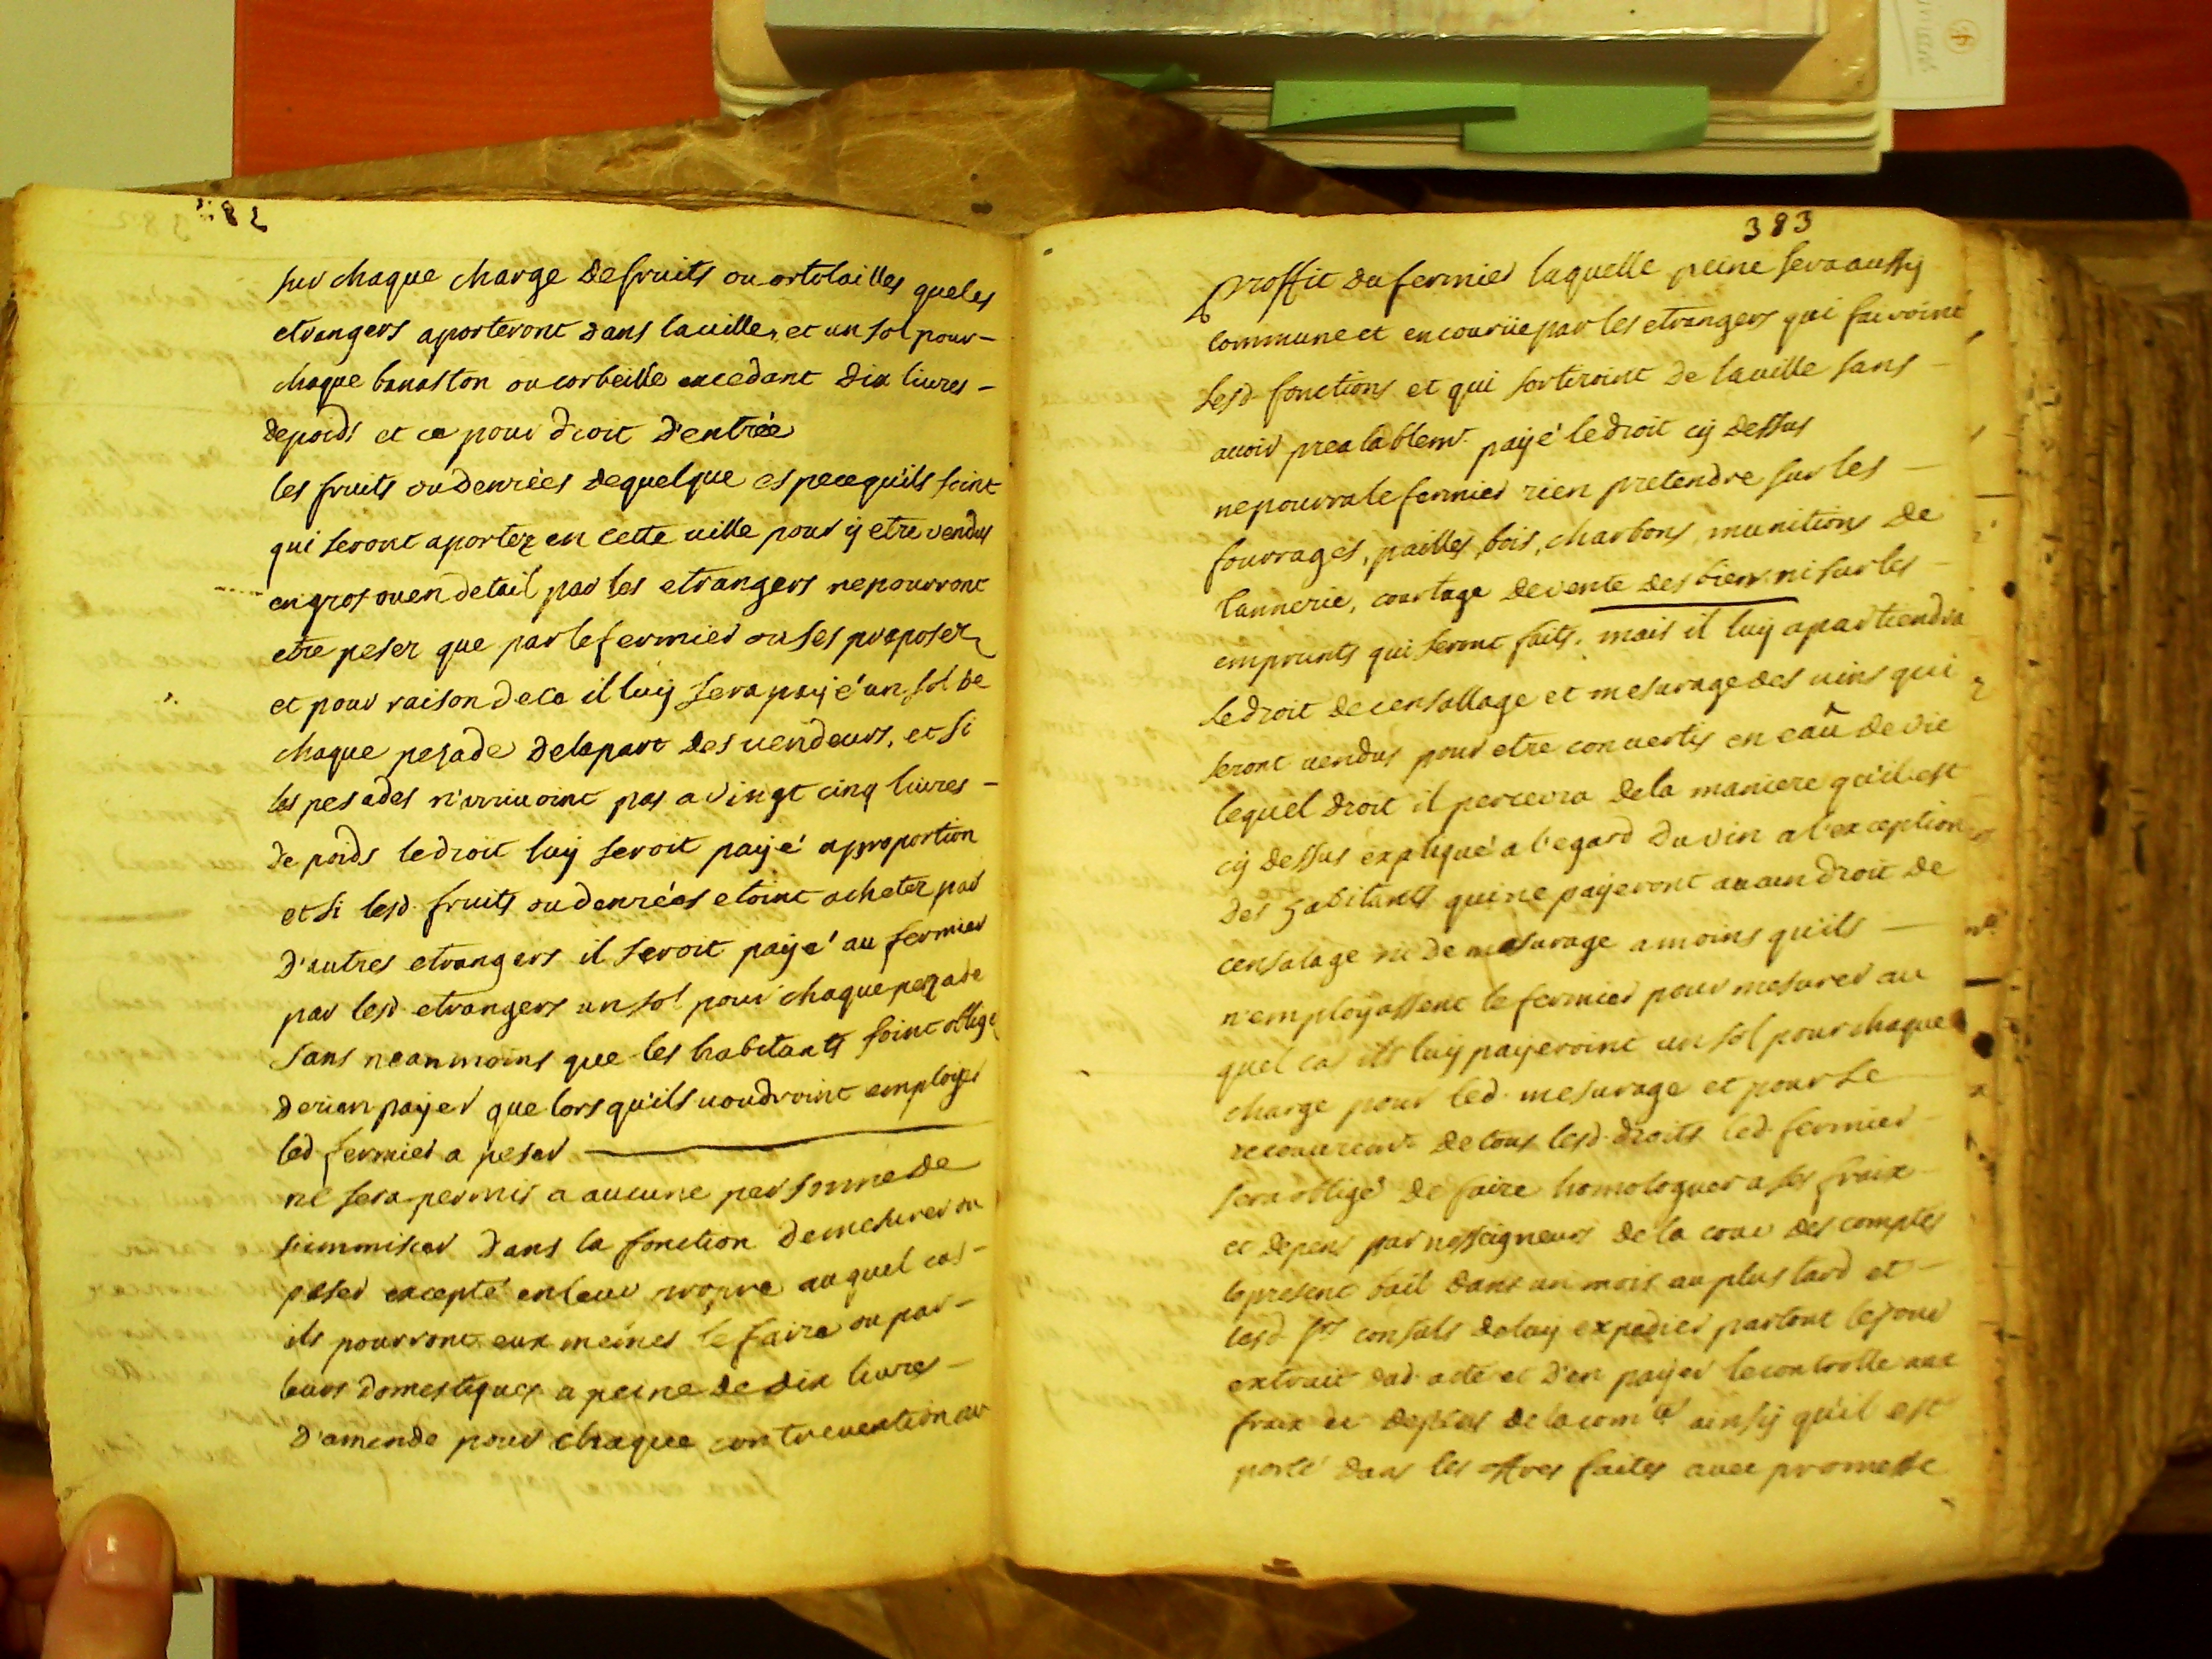 382
sur chaque charge de fruits ou ortolailles que les
etrangers aporteront dans la ville, et un sol pour -
chaque banaston ou corbeille excedant dix livres -
de poids et ce pour droit d'entrée
les fruits ou denrées de quelque espece qu'ils soint
qui seront aportez en cette ville pour y etre vendus
en gros ou en detail par les etrangers ne pourront
etre pesez que par le fermier ou ses preposez
et pour raison de ce il luy sera payé un sol de
chaque pezade de la part des vendeurs, et si
les pesades n'arrivoint pas a vingt cinq livres -
de poids le droit luy seroit payé a proportion
et si lesd. fruits ou denrées etoint achetez par
d'autres etrangers il seroit payé au fermier
par lesd. etrangers un sol pour chaque pezade
sans neanmoins que les habitants soint obligé
de rien payer que lors qu'ils voudroint employer
led fermier a peser
ne sera permis a aucune personne de
s'immiscer dans la fonction de mesurer ou
peser excepté en leur propre auquel cas -
ils pourront eux meines le faire ou par -
leurs domestiques a peine de dix livres -
d'amende pour chaque contrevention au
383
proffit du fermier laquelle peine sera aussy
commune et encourüe par les etrangers qui fairoint
lesd. fonctions et qui sortiroint de la ville sans -
avoir prealablemt. payé le droit cy dessus
ne pourra le fermier rien pretendre sur les -
fourrages, pailles, bois, charbons, munitions de
tannerie, courtage de vente des biens ni sur les -
emprunts qui seront faits. mais il luy apartiendra
le droit de censallage et mesurage des vins qui
seront vendus pour etre convertis en eaû de vie
lequel droit il percevra de la maniere qu'il est
cy dessus expliqué a l'egard du vin a l'exception
des habitants qui ne payeront aucun droit de
censalage ni de mesurage a moins qu'ils -
n'employassent le fermier pour mesurer au
quel cas ils luy payeroint un sol pour chaque
charge pour led. mesurage et pour le
recouvremt. de tous lesd. droits led. fermier -
sera obligé de faire homologuer a ses fraix
et depens par nosseigneurs de la cour des comptes
le present bail dans un mois au plus tard et -
lesd. srs consuls de luy expedier partout le jour
extrait dud. acte et d'en payer le controlle aux
fraix et depens de la comté ainsy qu'il est
porté dans les offres faites avec promesse